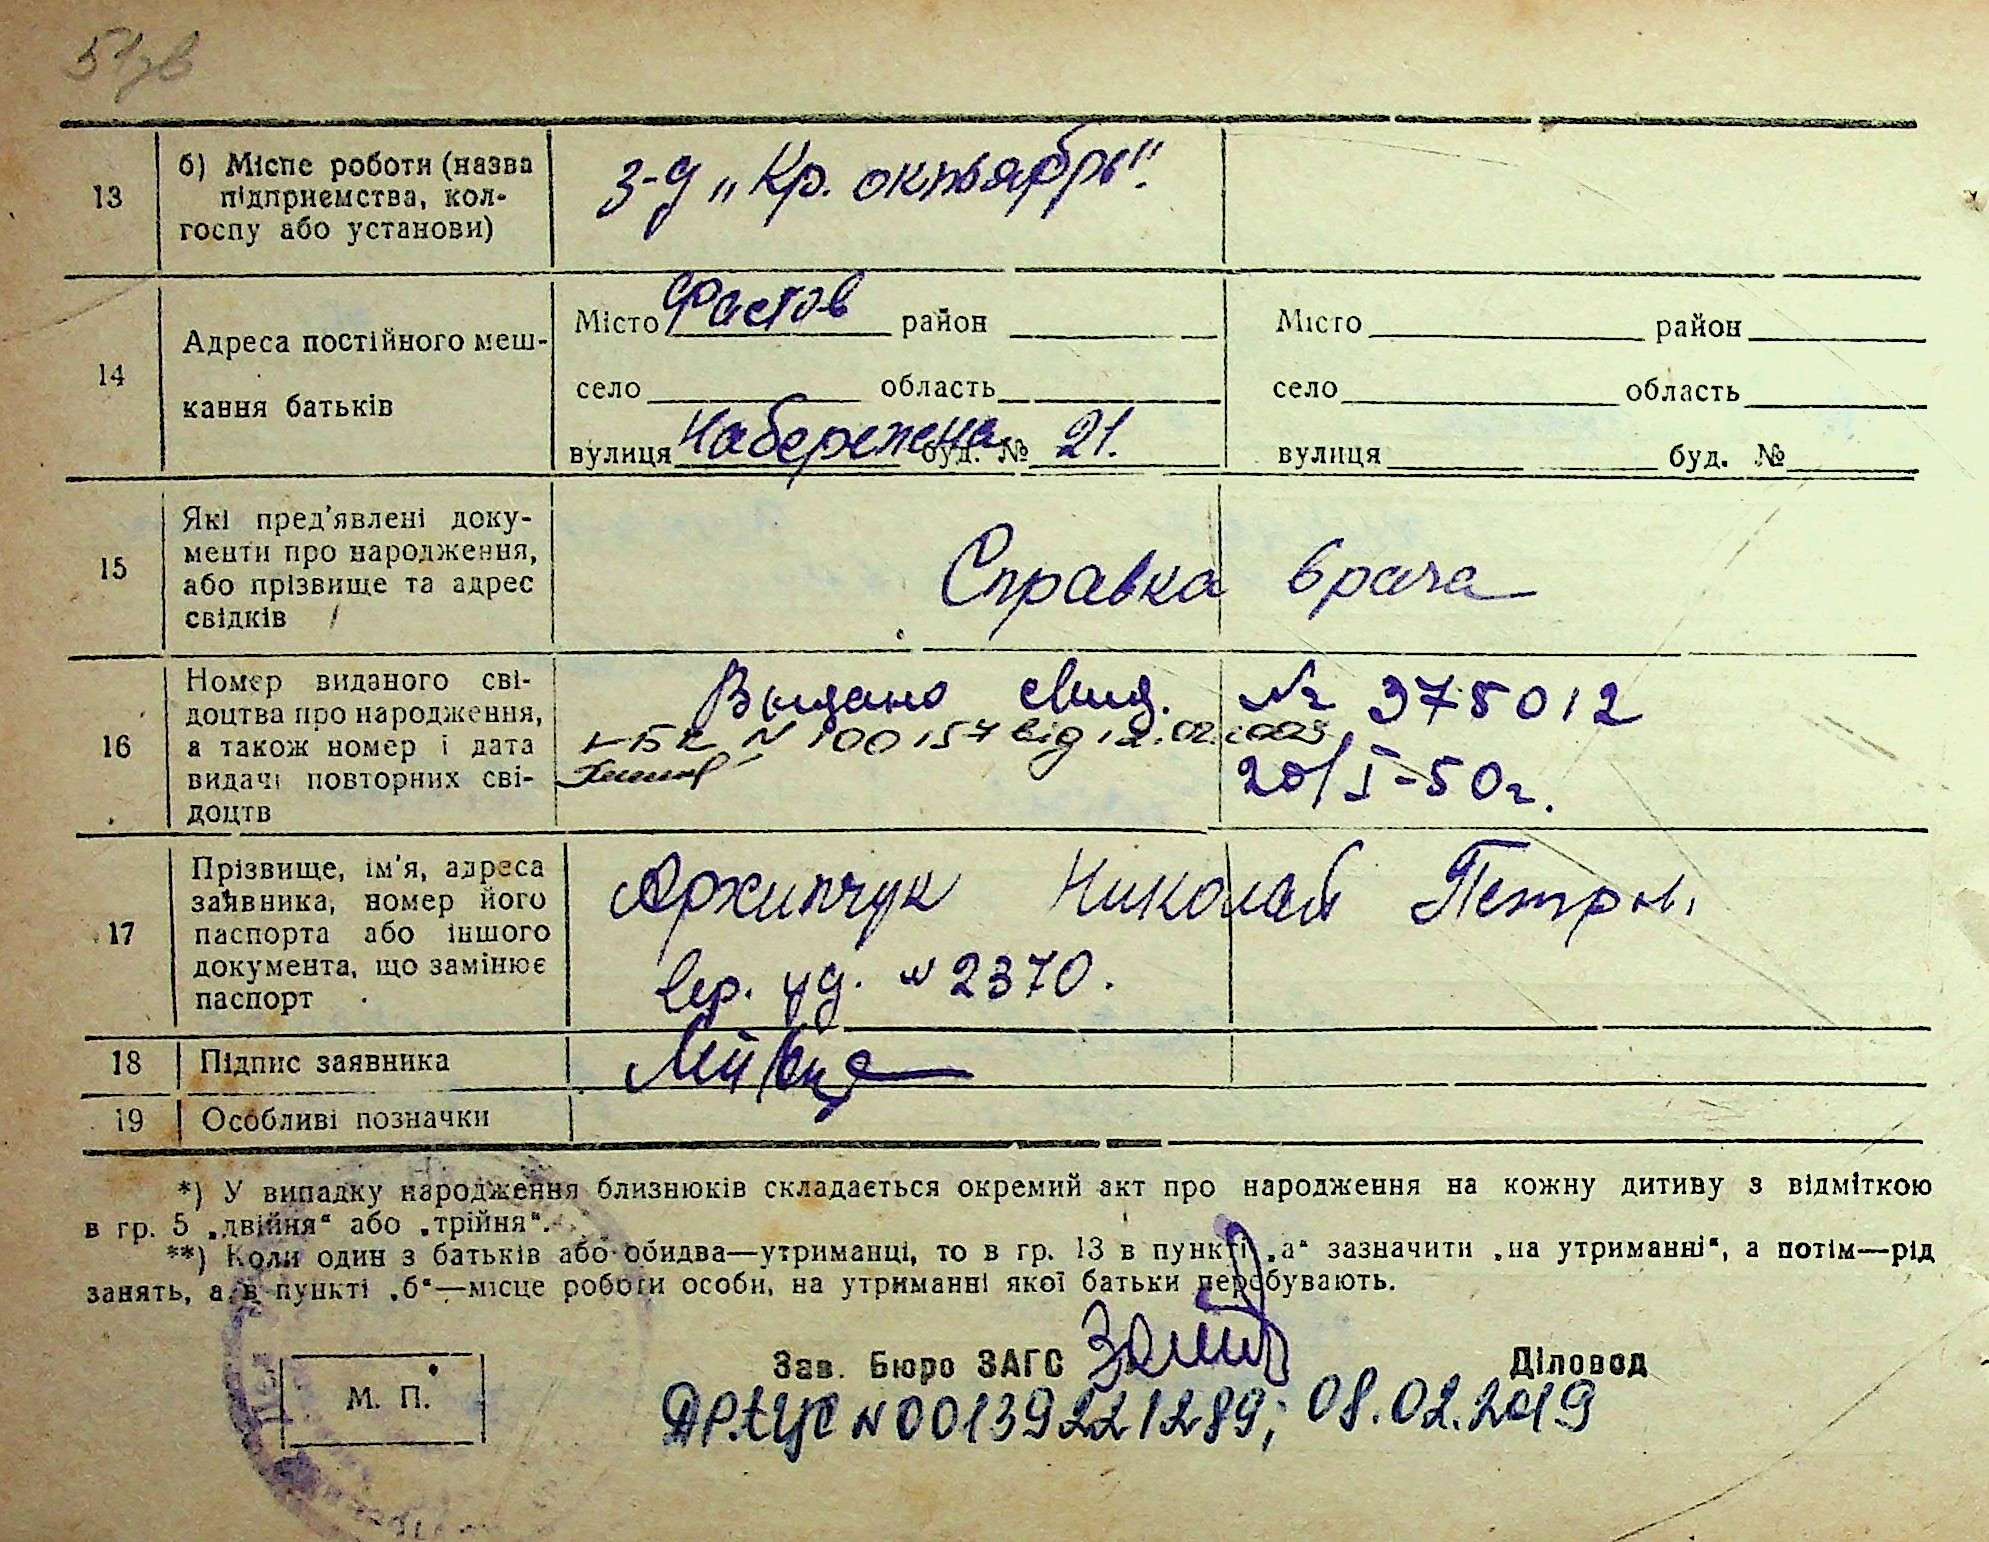 51зв
13
б) Місце роботи (назва
підприємства, кол-
госпу або установи)
з-д „Кр. октябрь“.
14
Адреса постійного меш-
кання батьків
Місто Фастов район
село область
вулиця Набережна буд. № 21.
Місто район
село область
вулиця буд. №
15
Які пред'явлені доку-
менти про народження,
або прізвище та адрес
свідків
Справка врача
16
Номер виданого сві-
доцтва про народження,
а також номер і дата
видачі повторних сві-
доцтв
Выдано свид. № 375012
І-БК N 100157 від 12.02.2003
20/I-50г.
17
Прізвище, ім'я, адреса
заявника, номер його
паспорта або іншого
документа, що замінює
паспорт
Архипчук Николай Петров.
вр. уд. №2370.
18
Підпис заявника
19
Особливі позначки
*) У випадку народження близнюків складається окремий акт про народження на кожну дитину з відміткою
в гр. 5 „двійня“ або „трійня“.
**) Коли один з батьків або обидва—утриманці, то в гр. 13 в пункті „а“ зазначити „на утриманні“, а потім—рід
занять, а в пункті „б“—місце роботи особи, на утриманні якої батьки перебувають.
М. П.
Зав. Бюро ЗАГС
Діловод
ДРАЦС N00139221289; 08.02.2019